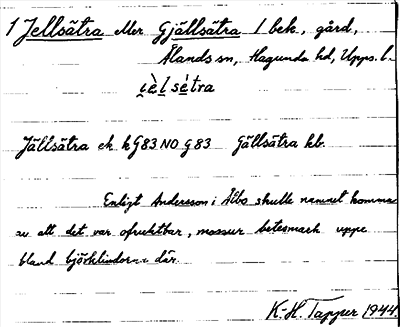 1 Jellsätra eller Gjällsätra 1 bek., gård,
Ålands sn, Hagunda hd, Upps. l.
Jällsätra ek kG83NOG83 Gällsätra kb.
Enligt Andersson i Älbo skulle namnet komma
av att det var ofruktbar, mossur betesmark uppe
bland björklindorna där.
K-H. Tapper 1944.